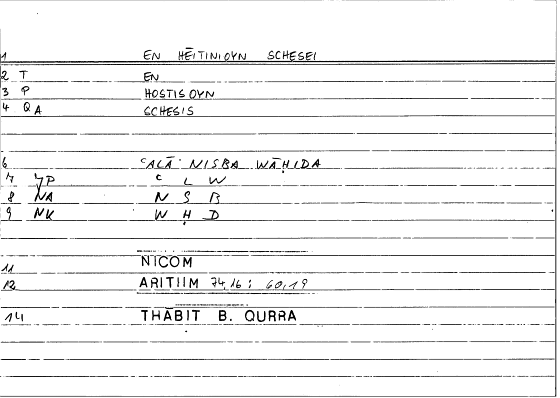 1 EN HĒITINIOYN SCHESEI
2 T EN
3 P HOSTISOYN
4 QA SCHESIS
6 ʿALĀ NISBA WĀḤIDA
7 JP ʿ L W
8 NA N S B
9 NK W Ḥ D
11 NICOM
12 ARITIIM 74,16 : 60,19
14 THĀBIT B. QURRA